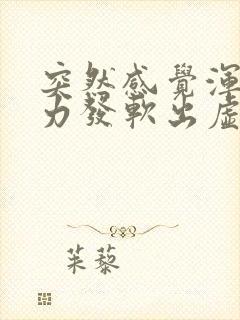 突然感覺渾
力發軟出虛
茱藜